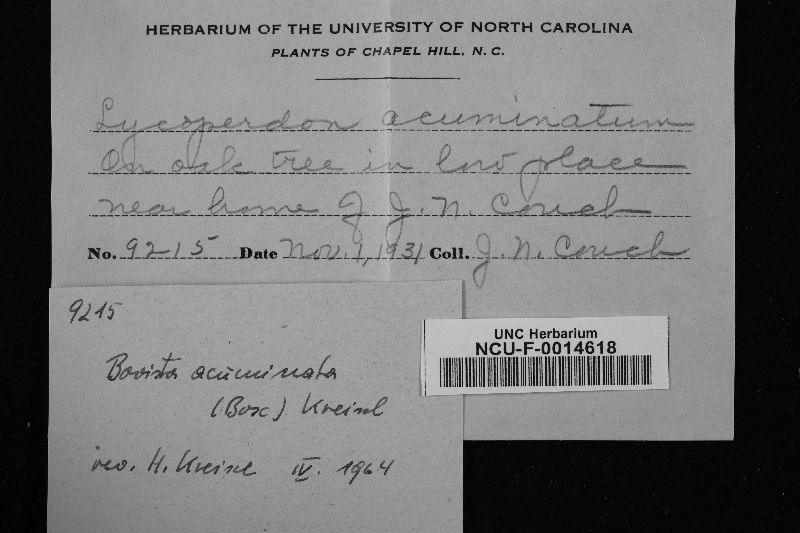 HERBARIUM OF THE UNIVERSITY OF NORTH CAROLINA
PLANTS OF CHAPEL HILL, N. C.
Lycoperdon acuminatum
On oak tree in low place
near home of J. N. Couch
No. 9215 Date Nov. 1, 1931 Coll. J. N. Couch
9215
Bovista acuminata
(Bosc) Kreisel
rev. H. Kreisel IV. 1964
UNC Herbarium
NCU-F-0014618